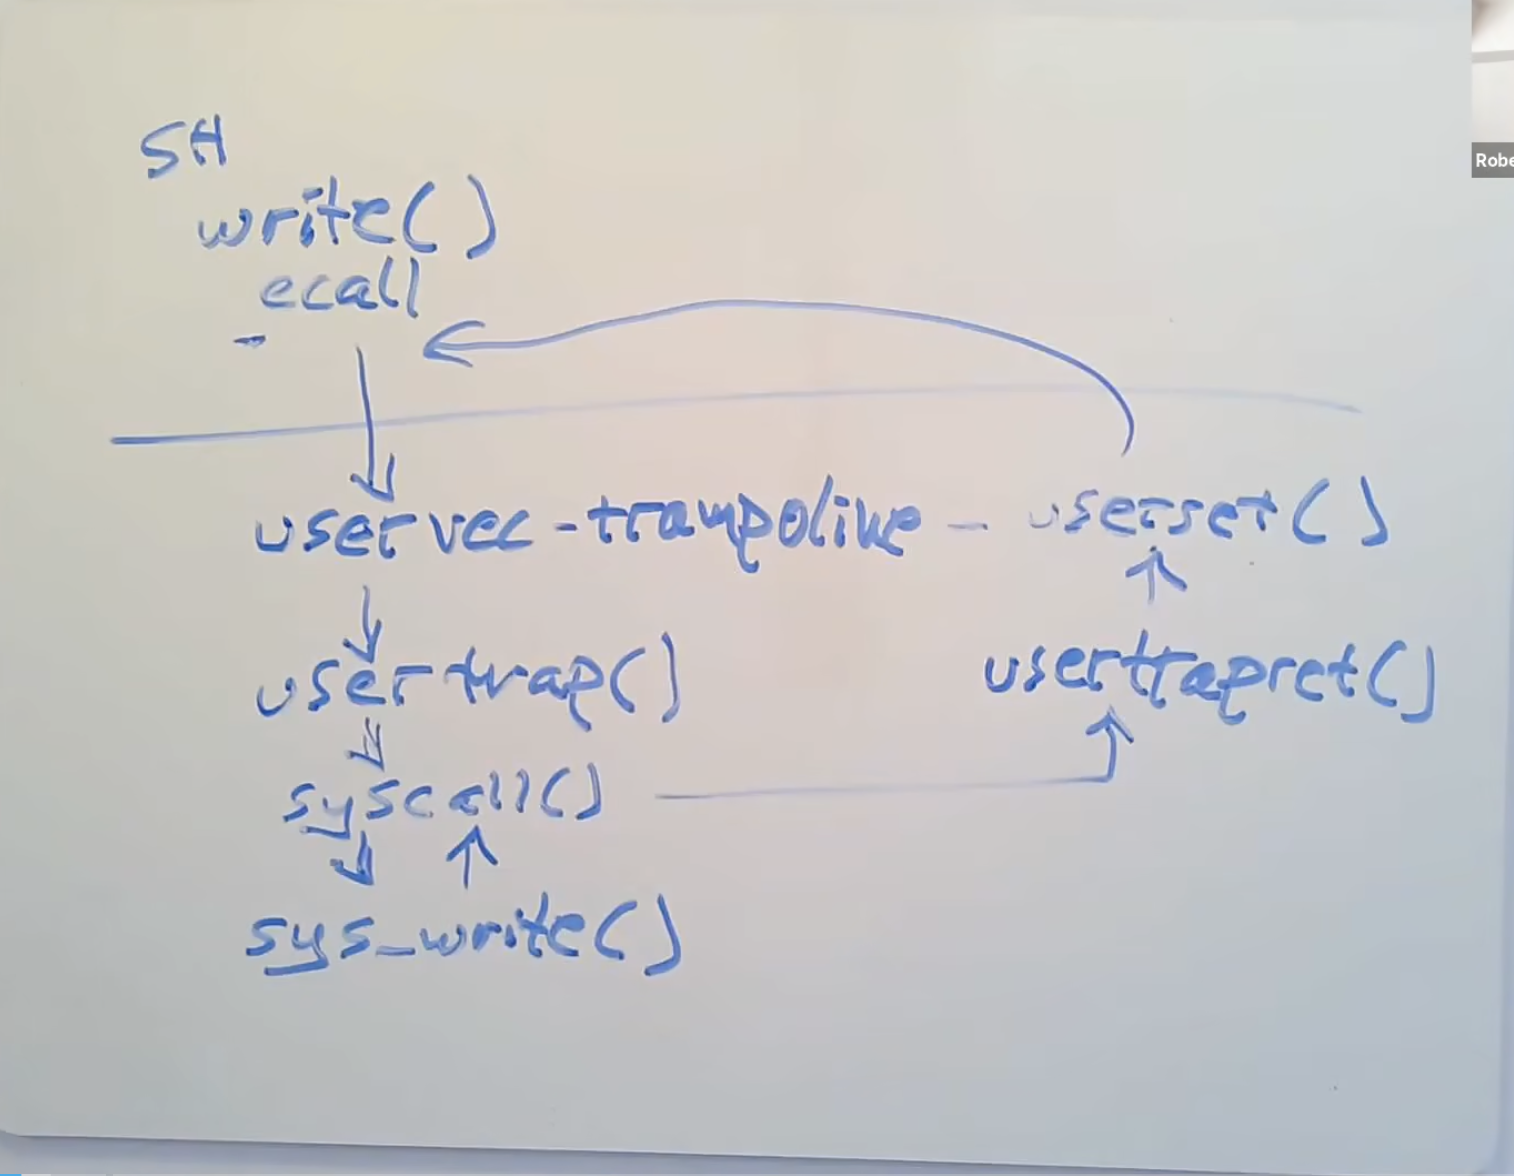 SH
write()
ecall
-
uservec - trampoline - userset()
usertrap()
usertrapret()
syscall()
sys_write()
Robe